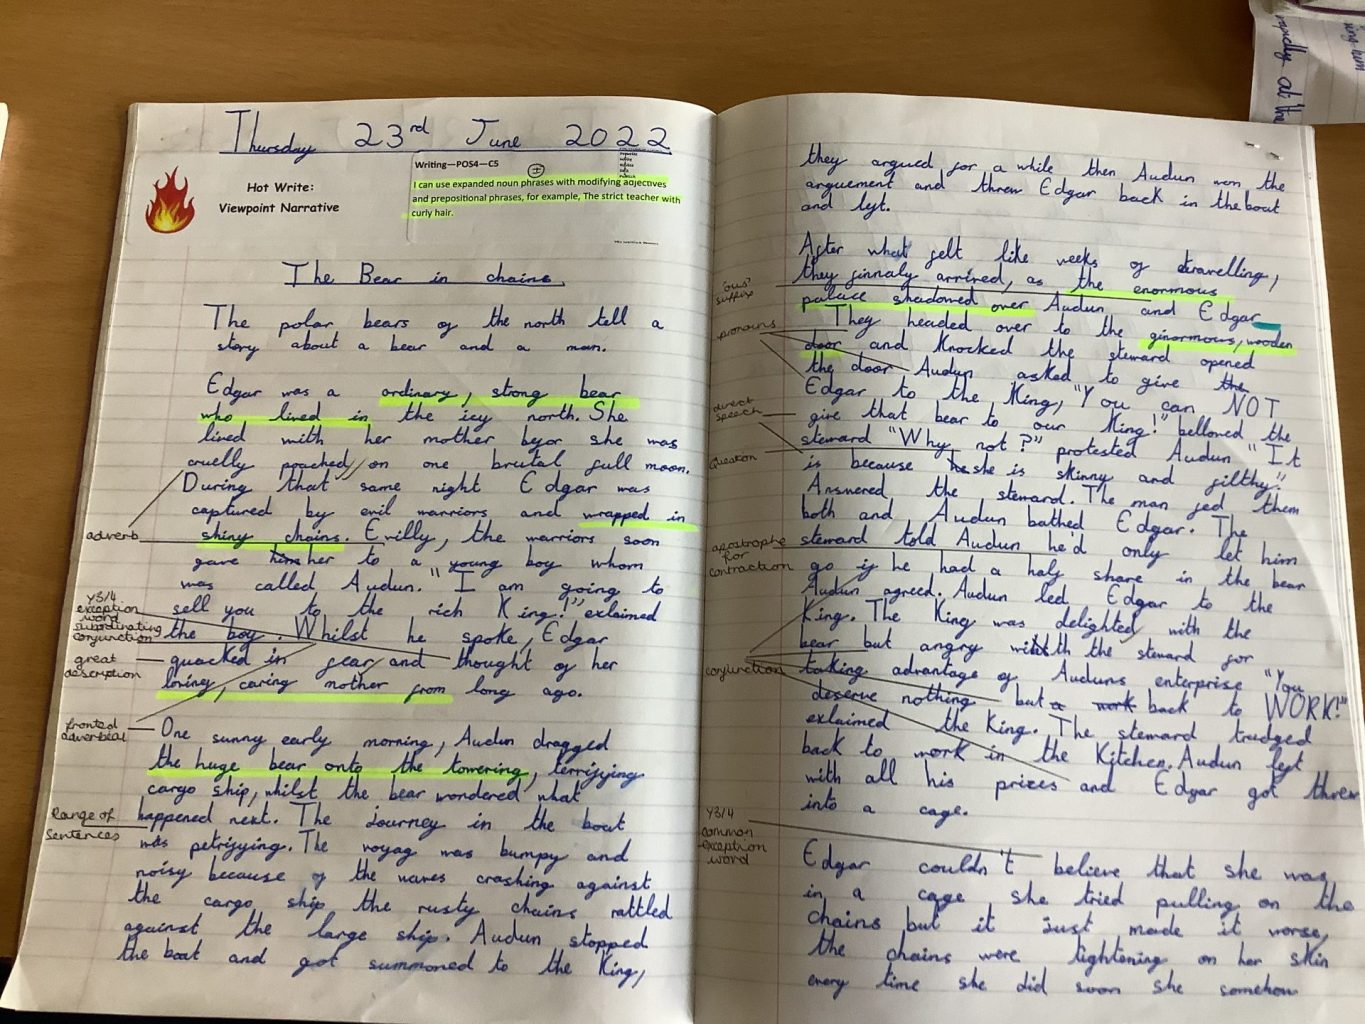 Thursday 23rd June 2022
Hot Write:
Viewpoint Narrative
Writing—POS4—C5
I can use expanded noun phrases with modifying adjectives
and prepositional phrases, for example, The strict teacher with
curly hair.
The Bear in chains
The polar bears of the north tell a
story about a bear and a man.
Edgar was a ordinary, strong bear
who lived in the icy north. She
lived with her mother befor she was
cruelly poached on one brutal full moon.
During that same night Edgar was
captured by evil warriors and wrapped in
shiny chains. Evilly, the warriors soon
gave her to a young boy whom
was called Audun. "I am going to
sell you to the rich King!" exlaimed
the boy. Whilst he spoke, Edgar
quacked in fear and thought of her
loving, caring mother from long ago.
One sunny early morning, Audun dragged
the huge bear onto the towering, terrifying
cargo ship, whilst the bear wondered what
happened next. The journey in the boat
was petrifying. The voyag was bumpy and
noisy because of the waves crashing against
the cargo ship the rusty chains rattled
against the large ship. Audun stopped
the boat and got summoned to the King,
adverb
Y3/4
exception
word
subordinating
conjunction
great
description
fronted
adverbeal
Range of
sentences
they argued for a while then Audun won the
arguement and threw Edgar back in the boat
and left.
After what felt like weeks of travelling,
they finnaly arrived, as the enormous
palace shadowed over Audun and Edgar
They headed over to the ginormous, wooden
door and knocked the steward opened
the door Audun asked to give the
Edgar to the King, "You can NOT
give that bear to our King!" bellowed the
steward "Why not?" protested Audun "It
is because she is skinny and filthy."
Answered the steward. The man fed them
both and Audun bathed Edgar. The
steward told Audun he'd only let him
go if he had a half share in the bear
Audun agreed. Audun led Edgar to the
King. The King was delighted with the
bear but angry with the steward for
taking advantage of Auduns enterprise "You
deserve nothing but a work back to WORK!"
exlaimed the King. The steward trudged
back to work in the Kitchen. Audun left
with all his prizes and Edgar got threw
into a cage.
Edgar couldn't believe that she was
in a cage she tried pulling on the
chains but it just made it worse,
the chains were tightening on her skin
every time she did soon she somehow
'ous'
suffix
pronouns
direct
speech
Question
apostrophe
for
contraction
conjunction
Y3/4
common
exception
word